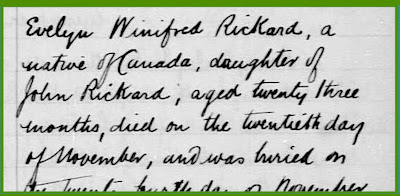 Evelyn Winifred Rickard, a
native of Canada, daughter of
John Rickard, aged twenty three
months, died on the twentieth day
of November, and was buried on
the twenty fourth day of November